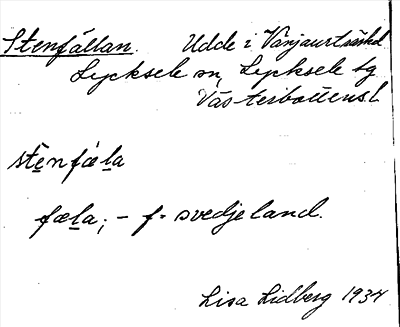 Stenfällan. Udde i Vänjaurträsket
Lycksele sn, Lycksele tg
Västerbottens l
stènfæla
fæla; - f. svedjeland.
Lisa Lidberg 1934